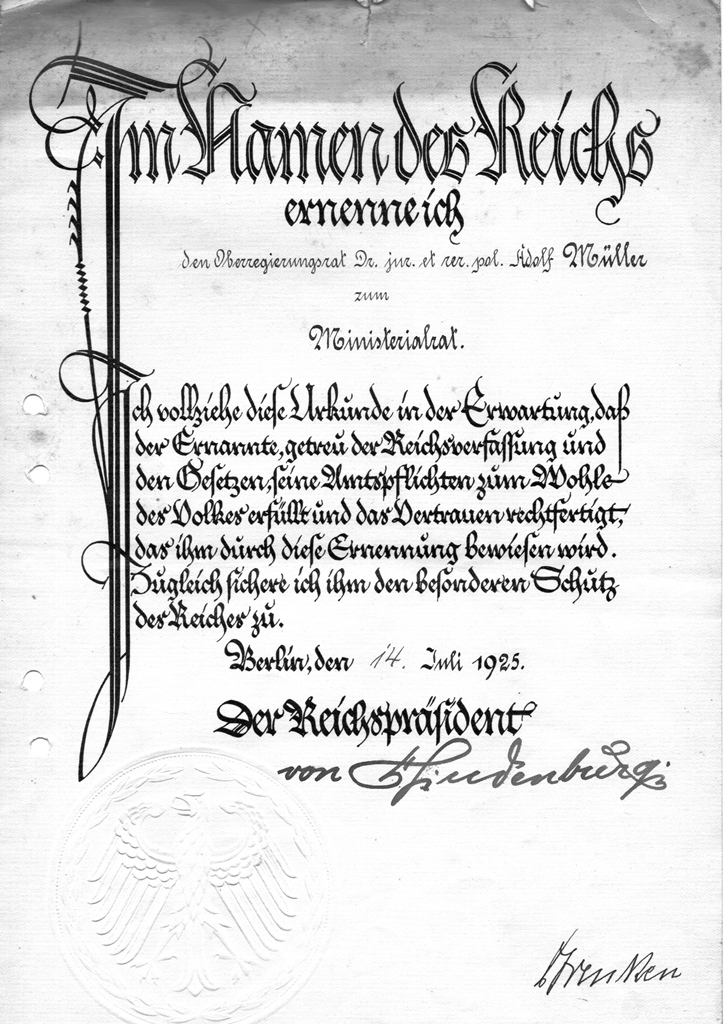 Im Namen des Reichs
ernenne ich
den Oberregierungsrat Dr. jur. et rer. pol. Adolf Müller
zum
Ministerialrat.
Ich vollziehe diese Urkunde in der Erwartung, daß
der Ernannte, getreu der Reichsverfassung und
den Gesetzen, seine Amtspflichten zum Wohle
des Volkes erfüllt und das Vertrauen rechtfertigt,
das ihm durch diese Ernennung bewiesen wird.
Zugleich sichere ich ihm den besonderen Schutz
des Reiches zu.
Berlin, den 14. Juli 1925.
Der Reichspräsident
von Hindenburg
Frenken